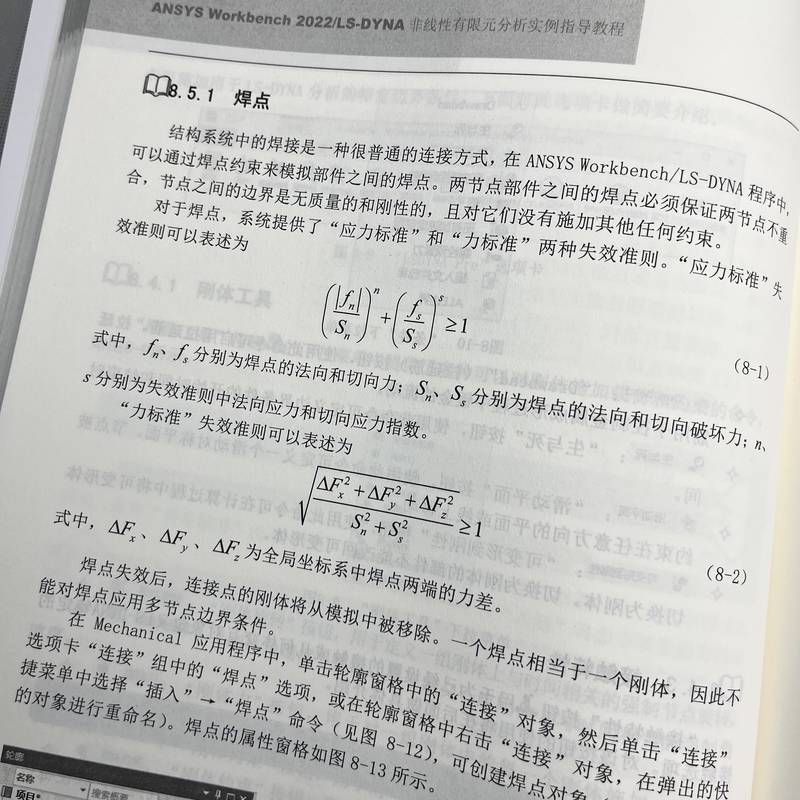 ANSYS Workbench 2022/LS-DYNA 非线性有限元分析实例指导教程
8.5.1 焊点
结构系统中的焊接是一种很普通的连接方式，在 ANSYS Workbench/LS-DYNA 程序中，
可以通过焊点约束来模拟部件之间的焊点。两节点部件之间的焊点必须保证两节点不重
合，节点之间的边界是无质量的和刚性的，且对它们没有施加其他任何约束。
对于焊点，系统提供了“应力标准”和“力标准”两种失效准则。“应力标准”失
效准则可以表述为
(|f_n|/S_n)^n + (f_s/S_s)^s ≥ 1
(8-1)
式中，f_n、f_s 分别为焊点的法向和切向力；S_n、S_s 分别为焊点的法向和切向破坏力；n、
s 分别为失效准则中法向应力和切向应力指数。
“力标准”失效准则可以表述为
√((ΔF_x^2+ΔF_y^2+ΔF_z^2)/(S_n^2+S_s^2)) ≥ 1
(8-2)
式中，ΔF_x、ΔF_y、ΔF_z 为全局坐标系中焊点两端的力差。
焊点失效后，连接点的刚体将从模拟中被移除。一个焊点相当于一个刚体，因此不
能对焊点应用多节点边界条件。
在 Mechanical 应用程序中，单击轮廓窗格中的“连接”对象，然后单击“连接”
选项卡“连接”组中的“焊点”选项，或在轮廓窗格中右击“连接”对象，在弹出的快
捷菜单中选择“插入”→“焊点”命令（见图 8-12），可创建焊点对象
的对象进行重命名）。焊点的属性窗格如图 8-13 所示。
轮廓
名称
搜索概要
项目*